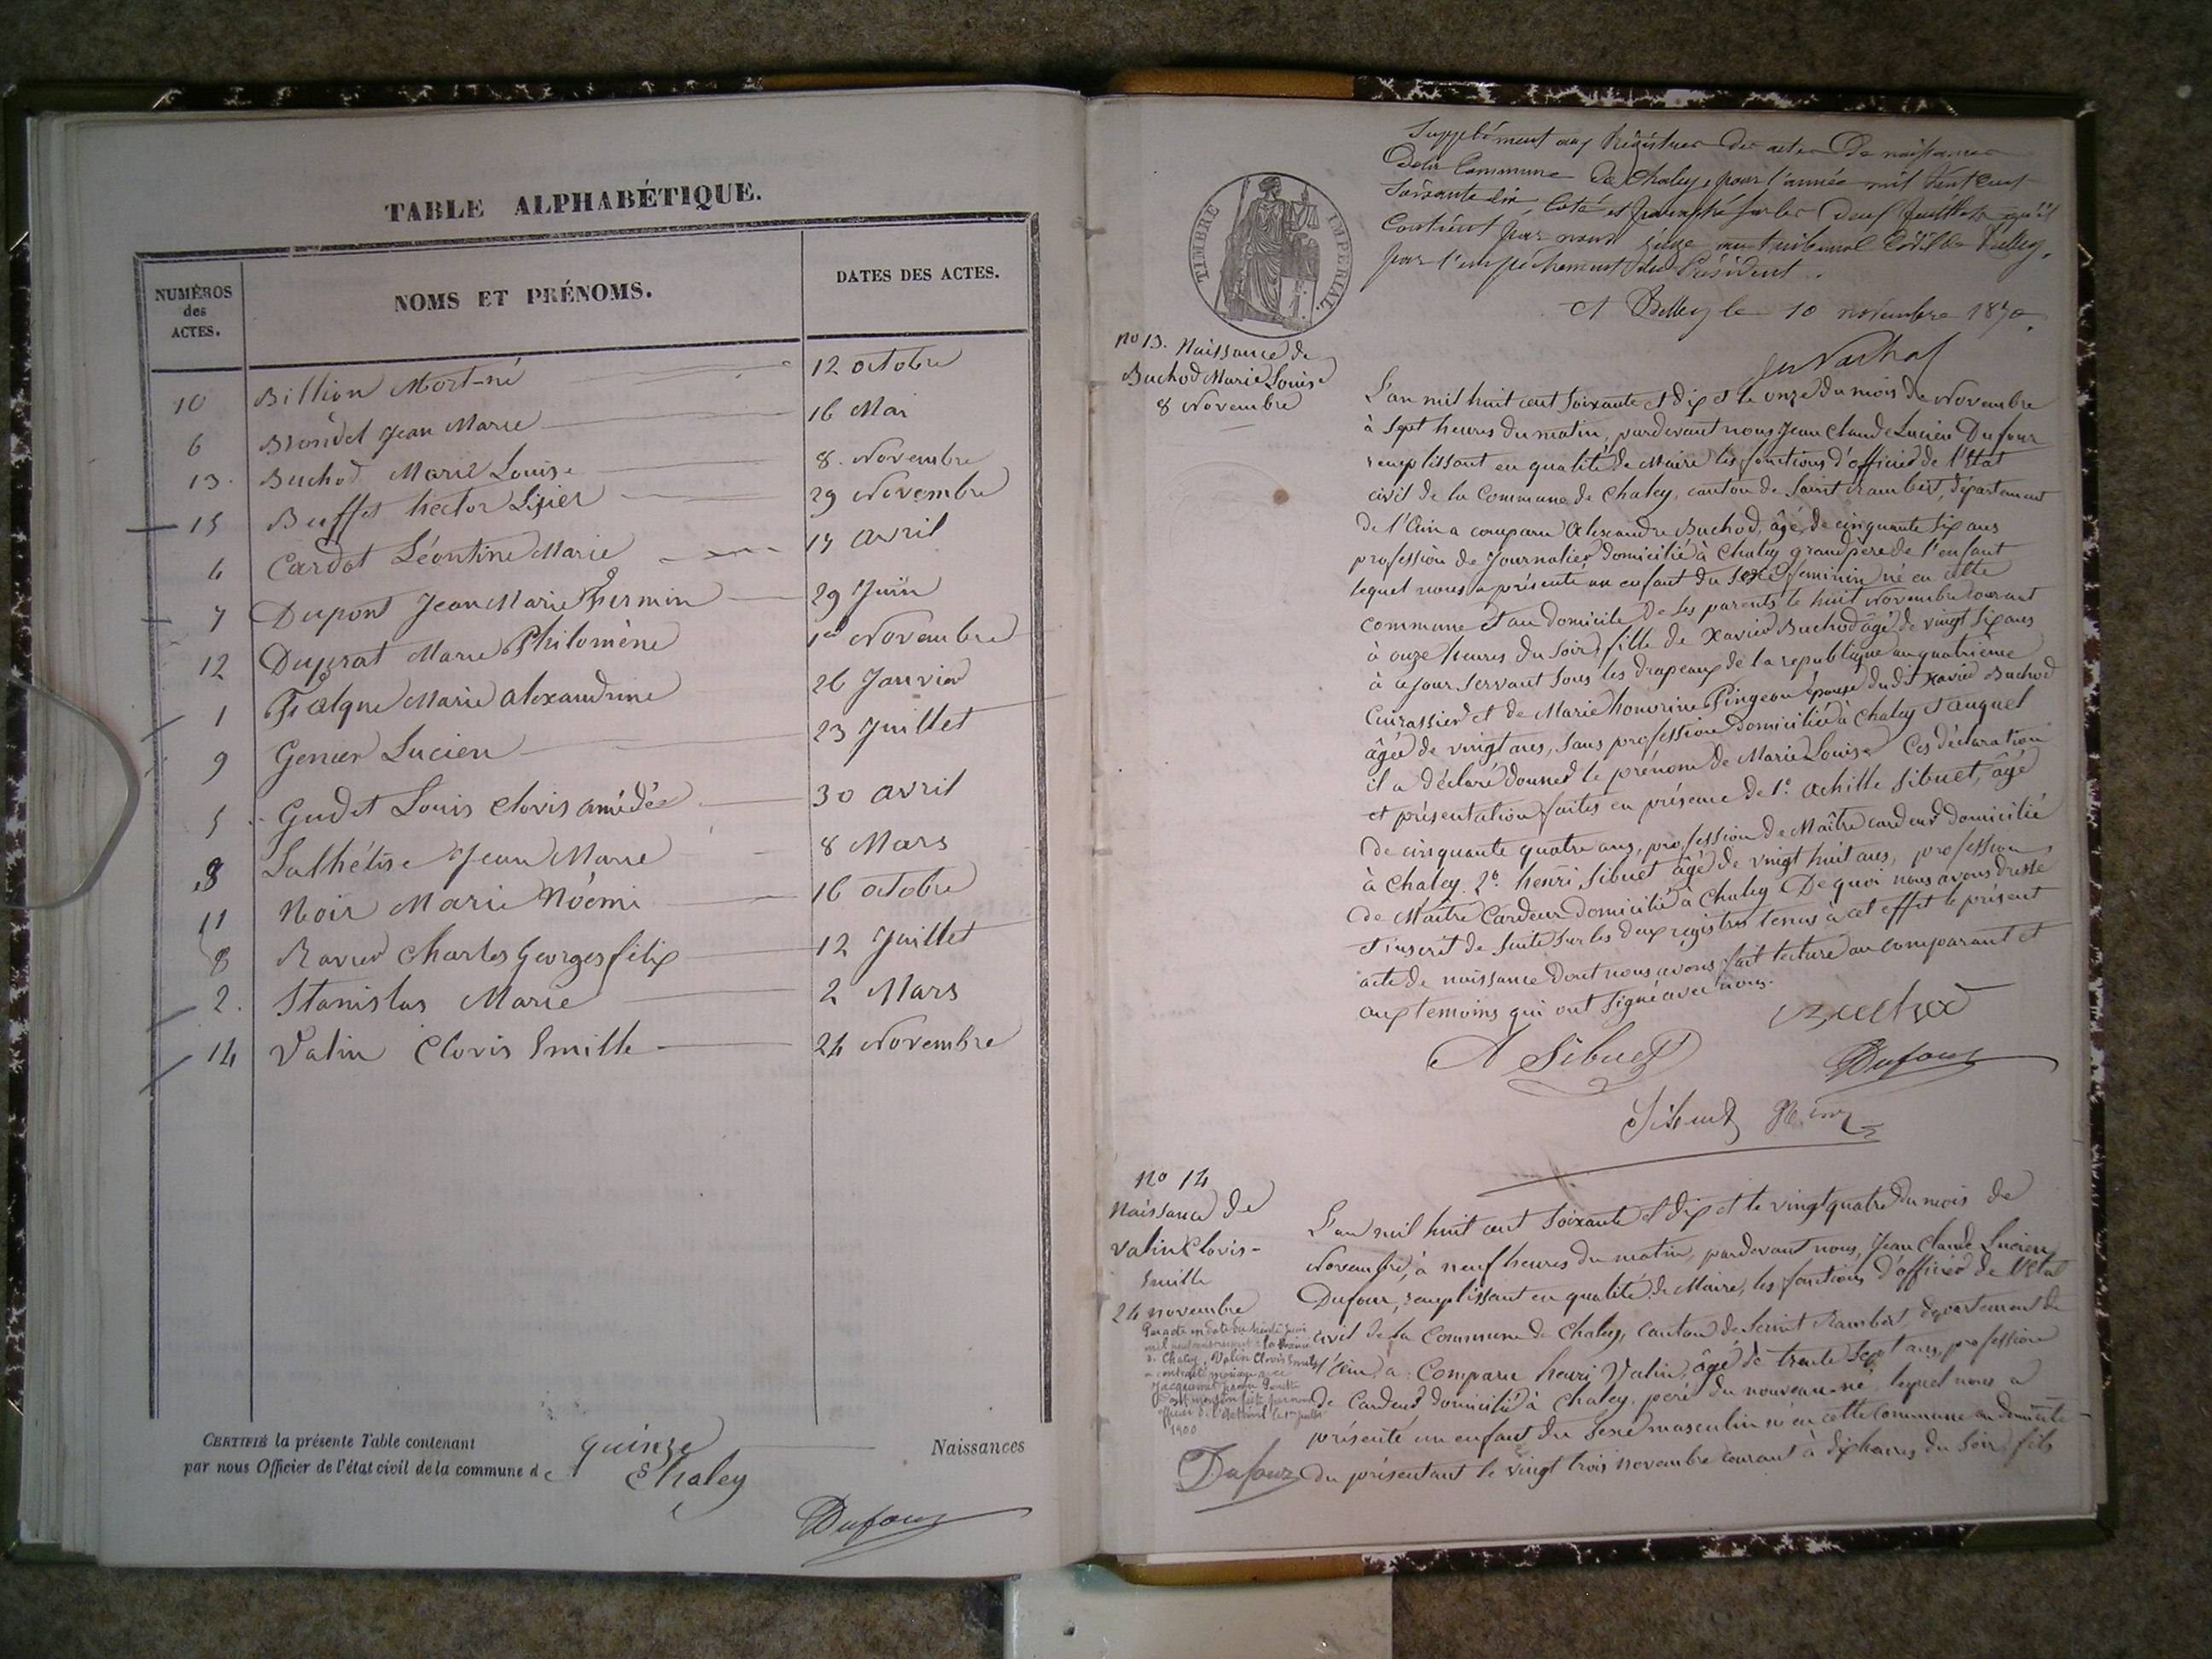 TABLE ALPHABÉTIQUE.
NUMÉROS des ACTES.
NOMS ET PRÉNOMS.
DATES DES ACTES.
10 Billion Mort-né 12 octobre
6 Brondel Jean Marie 16 Mai
13. Buchod Marie Louise 8. Novembre
15 Buffet hector Lisier 29 Novembre
4 Cardot Léontine Marie 17 avril
7 Dupont Jean Marie Firmin 29 Juin
12 Duprat Marie Philomène 1er Novembre
1 Falque Marie alexandrine 26 Janvier
9 Lucien 23 Juillet
5 Gudet Louis Clovis amédée 30 avril
3 Lathélise Jean Marie 8 Mars
11 Noir Marie Noémi 16 octobre
8 Ravier Charles Georges félix 12 Juillet
2. Stanislas Marie 2 Mars
14 Valin Clovis Emille 24 Novembre
CERTIFIÉ la présente Table contenant quinze Naissances
par nous Officier de l'état civil de la commune de Chaley
Dufour
TIMBRE IMPÉRIAL.
Supplément aux Régistres des actes de naissances
de la Commune de Chaley, pour l'année mil huit cent
soixante dix, coté et paraphé sur les deux feuillets qu'il
contient par nous juge au tribunal Civil de Belley,
par l'empêchement du Président.
A Belley le 10 novembre 1870.
no 13. Naissance de
Buchod Marie Louise
8 Novembre
L'an mil huit cent soixante et dix et le onze du mois de Novembre
à sept heures du matin, pardevant nous Jean Claude Lucien Dufour
remplissant en qualité de Maire les fonctions d'officier de l'État
civil de la Commune de Chaley, canton de Saint Rambert, département
de l'Ain a comparu Alexandre Buchod, âgé de cinquante six ans
profession de Journalier domicilié à Chaley grand père de l'enfant
lequel nous a présenté un enfant du sexe féminin né en cette
commune et au domicile de ses parents le huit Novembre courant
à onze heures du soir, fille de Xavier Buchod âgé de vingt six ans
à ce jour servant sous les drapeaux de la republique au quatrième
Cuirassier et de Marie honorine Pingeon épouse du dit Xavier Buchod
âgée de vingt ans, sans profession domiciliée à Chaley et auquel
il a déclaré donner le prénom de Marie Louise Ces déclaration
et présentation faites en présence de 1o. achille Sibuet, âgé
de cinquante quatre ans, profession de Maître cardeur domicilié
à Chaley. 2o. henri Sibuet âgé de vingt huit ans, profession
de Maître Cardeur domicilié à Chaley De quoi nous avons dressé
et inscrit de suite sur les deux registres tenus à cet effet le présent
acte de naissance dont nous avons fait lecture au comparant et
aux temoins qui ont signé avec nous.
Buchod
A Sibuet
Dufour
Sibuet
no 14
Naissance de
Valin Clovis-
Emille
24 novembre
L'an mil huit cent soixante et dix et le vingt quatre du mois de
Novembre, à neuf heures du matin, pardevant nous, Jean Claude Lucien
Dufour, remplissant en qualité de Maire, les fonctions d'officier de l'État
civil de la Commune de Chaley, canton de Saint Rambert, département de
l'Ain, a Comparu henri Valin, âgé de trente sept ans, profession
de Cardeur domicilié à Chaley, père du nouveau-né, lequel nous a
présenté un enfant du Sexe masculin né en cette Commune au domicile
du présentant le vingt trois novembre courant à dix heures du soir, fils
de Chaley, Valin Clovis Emille
a contracté mariage avec
1900
Dufour